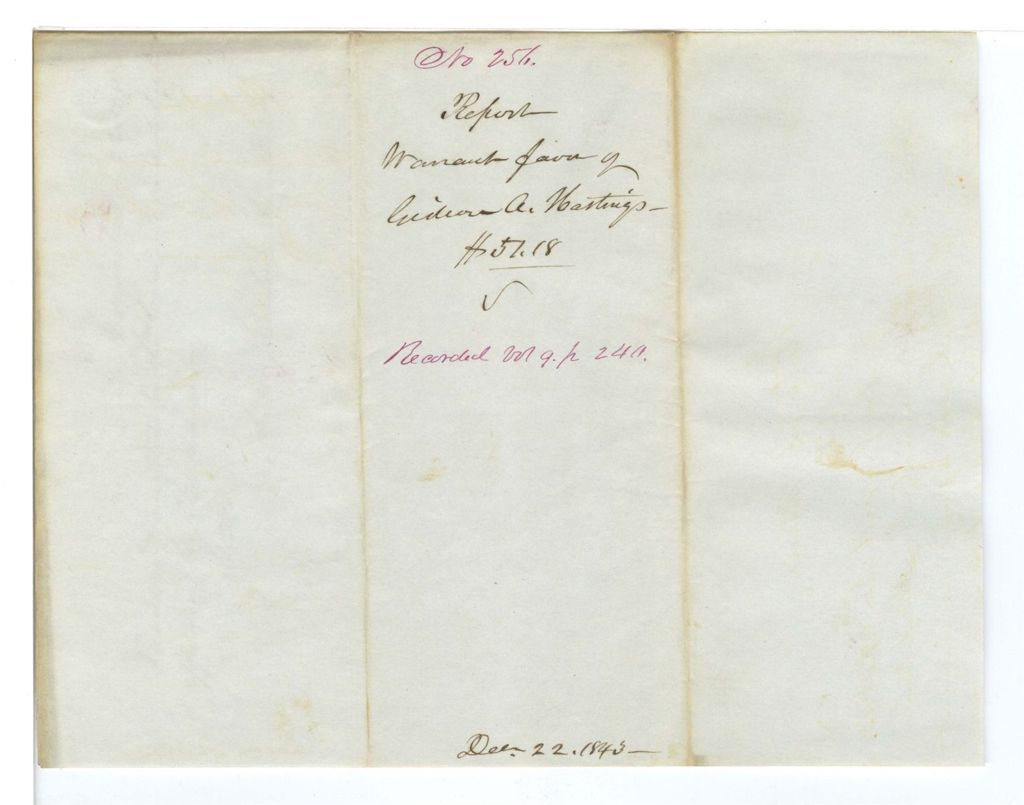 No 256.
Report
Warrant favor of
Gideon A. Hastings
$57.18
Recorded Vol 9. p 240.
Dec. 22. 1843